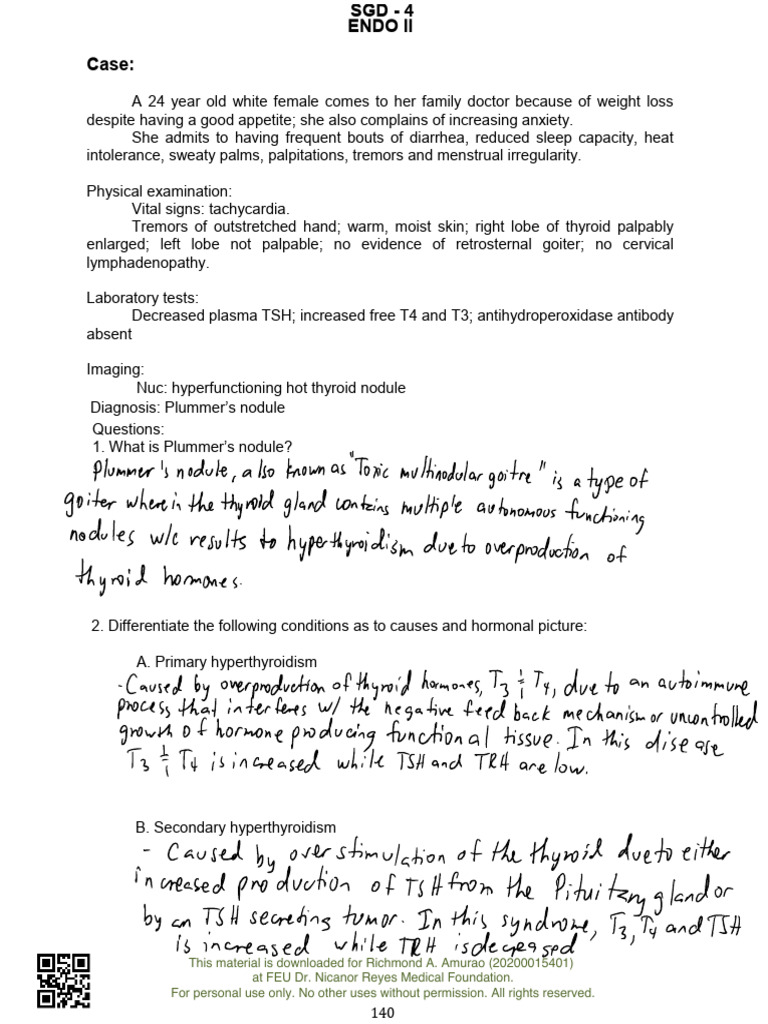 SGD - 4
ENDO II
Case:
A 24 year old white female comes to her family doctor because of weight loss
despite having a good appetite; she also complains of increasing anxiety.
She admits to having frequent bouts of diarrhea, reduced sleep capacity, heat
intolerance, sweaty palms, palpitations, tremors and menstrual irregularity.
Physical examination:
Vital signs: tachycardia.
Tremors of outstretched hand; warm, moist skin; right lobe of thyroid palpably
enlarged; left lobe not palpable; no evidence of retrosternal goiter; no cervical
lymphadenopathy.
Laboratory tests:
Decreased plasma TSH; increased free T4 and T3; antihydroperoxidase antibody
absent
Imaging:
Nuc: hyperfunctioning hot thyroid nodule
Diagnosis: Plummer's nodule
Questions:
1. What is Plummer's nodule?
Plummer's nodule, also known as "Toxic multinodular goitre" is a type of
goiter wherein the thyroid gland contains multiple autonomous functioning
nodules w/c results to hyperthyroidism due to overproduction of
thyroid hormones.
2. Differentiate the following conditions as to causes and hormonal picture:
A. Primary hyperthyroidism
- Caused by overproduction of thyroid hormones, T3 & T4, due to an autoimmune
process that interferes w/ the negative feed back mechanism or uncontrolled
growth of hormone producing functional tissue. In this disease
T3 & T4 is increased while TSH and TRH are low.
B. Secondary hyperthyroidism
- Caused by over stimulation of the thyroid due to either
increased production of TSH from the Pituitary gland or
by an TSH secreting tumor. In this syndrome, T3, T4 and TSH
is increased while TRH is decreased
This material is downloaded for Richmond A. Amurao (20200015401)
at FEU Dr. Nicanor Reyes Medical Foundation.
For personal use only. No other uses without permission. All rights reserved.
140